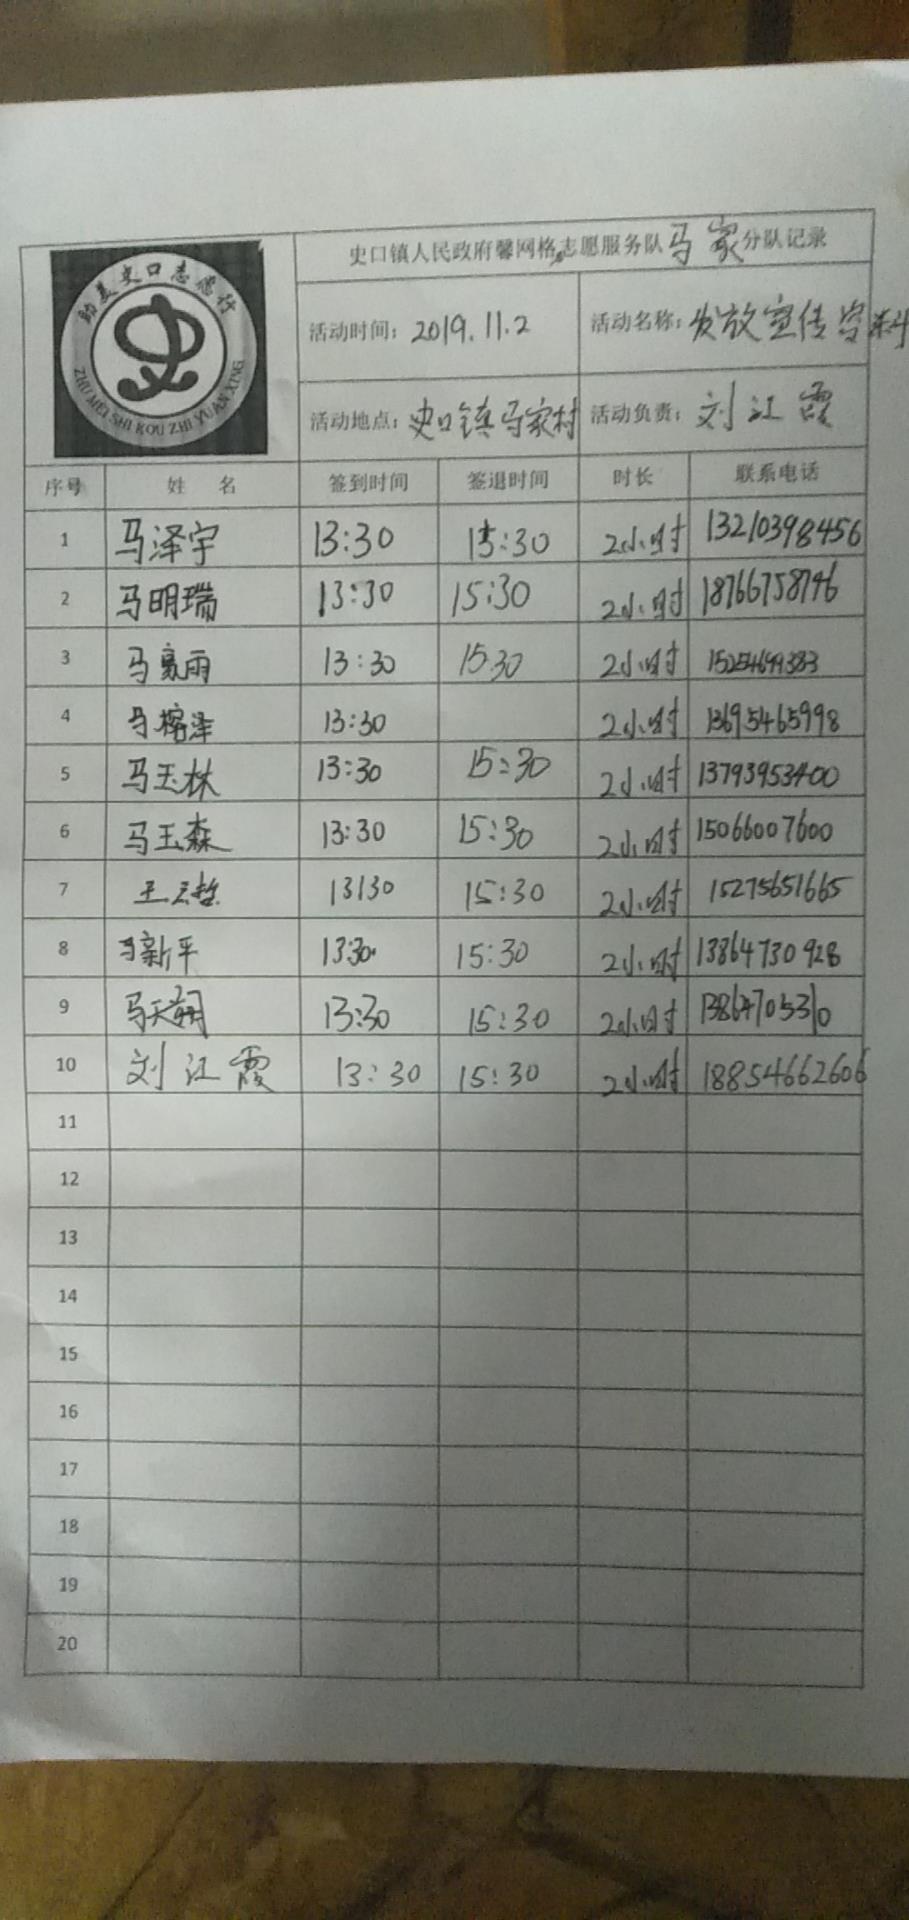 助美史口志愿行
ZHU MEI SHI KOU ZHI YUAN XING
史口镇人民政府馨网格志愿服务队马家分队记录
活动时间：2019.11.2 活动名称：发放宣传资料
活动地点：史口镇马家村 活动负责：刘江霞
序号 姓 名 签到时间 签退时间 时长 联系电话
1 马泽宇 13:30 15:30 2小时 13210398456
2 马明瑞 13:30 15:30 2小时 18766758746
3 马豪雨 13:30 15:30 2小时
4 马榕泽 13:30 2小时 13695465998
5 马玉林 13:30 15:30 2小时 13793953400
6 马玉森 13:30 15:30 2小时 15066007600
7 13130 15:30 2小时 15275651665
8 马新平 13:30 15:30 2小时 13864730928
9 13:30 15:30 2小时 13864705310
10 刘江霞 13:30 15:30 2小时 18854662606
11
12
13
14
15
16
17
18
19
20